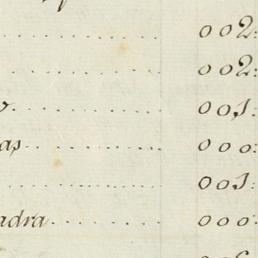 002:
002:
o 001:
as 000:
001:
adra 000: